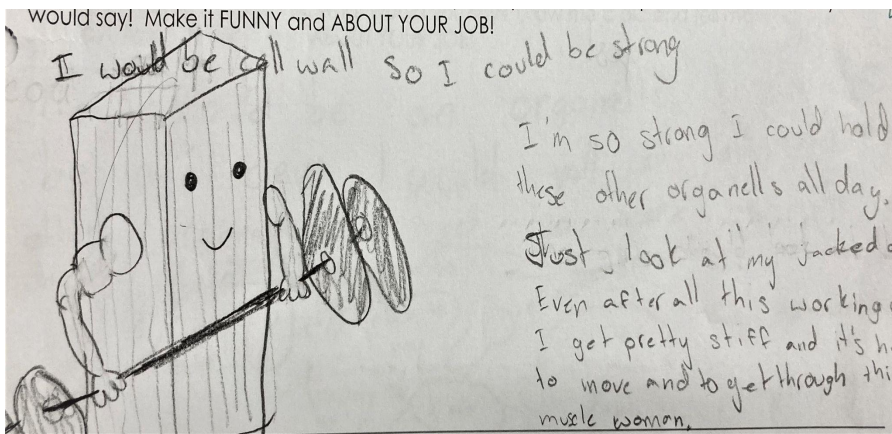 would say! Make it FUNNY and ABOUT YOUR JOB!
I would be cell wall so I could be strong
I'm so strong I could hold
these other organells all day.
Just look at my jacked
Even after all this working
I get pretty stiff and it's
to move and to get through
muscle woman.